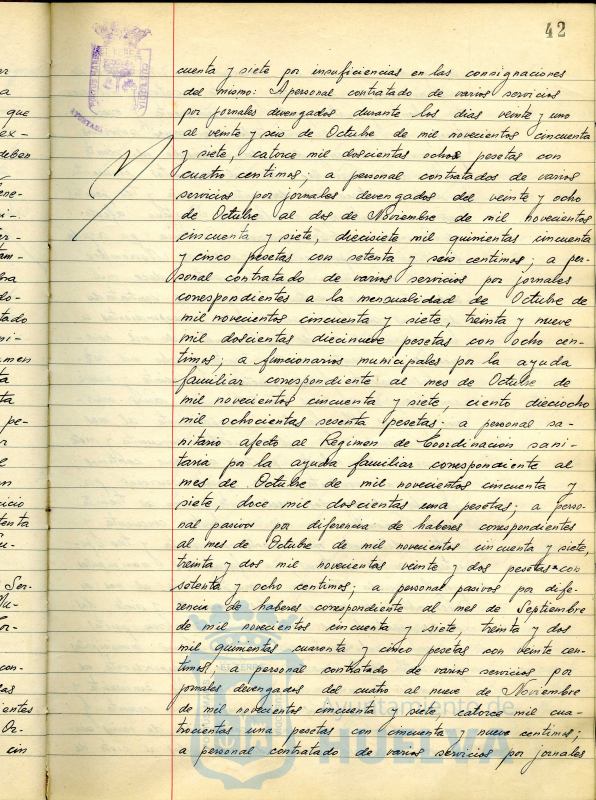 42
cuenta y siete por insuficiencias en las consignaciones
del mismo: A personal contratado de varios servicios
por jornales devengados durante los dias veinte y uno
al veinte y seis de Octubre de mil novecientos cincuenta
y siete, catorce mil doscientas ocho pesetas con
cuatro centimos; a personal contratados de varios
servicios por jornales devengados del veinte y ocho
de Octubre al dos de Noviembre de mil novecientos
cincuenta y siete, diecisiete mil quinientas cincuenta
y cinco pesetas con setenta y seis centimos; a per-
sonal contratado de varios servicios por jornales
correspondientes a la mensualidad de Octubre de
mil novecientos cincuenta y siete, treinta y nueve
mil doscientas diecinueve pesetas con ocho cen-
timos; a funcionarios municipales por la ayuda
familiar correspondiente al mes de Octubre de
mil novecientos cincuenta y siete, ciento dieciocho
mil ochocientas sesenta pesetas; a personal sa-
nitario afecto al Regimen de Coordinacion sani-
taria por la ayuda familiar correspondiente al
mes de Octubre de mil novecientos cincuenta y
siete, doce mil doscientas una pesetas; a perso-
nal pasivos por diferencia de haberes correspondientes
al mes de Octubre de mil novecientos cincuenta y siete,
treinta y dos mil novecientas veinte y dos pesetas con
setenta y ocho centimos; a personal pasivos por dife-
rencia de haberes correspondiente al mes de Septiembre
de mil novecientos cincuenta y siete, treinta y dos
mil quinientas cuarenta y cinco pesetas con veinte cen-
timos; a personal contratado de varios servicios por
jornales devengados del cuatro al nueve de Noviembre
de mil novecientos cincuenta y siete, catorce mil cua-
trocientas una pesetas con cincuenta y nueve centimos;
a personal contratado de varios servicios por jornales
Ayuntamiento de
HUELVA